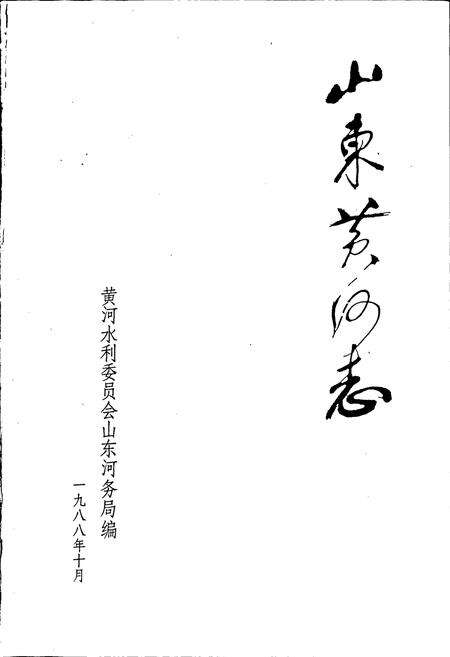 山東黄河志
黄河水利委员会山东河务局编
一九八八年十月